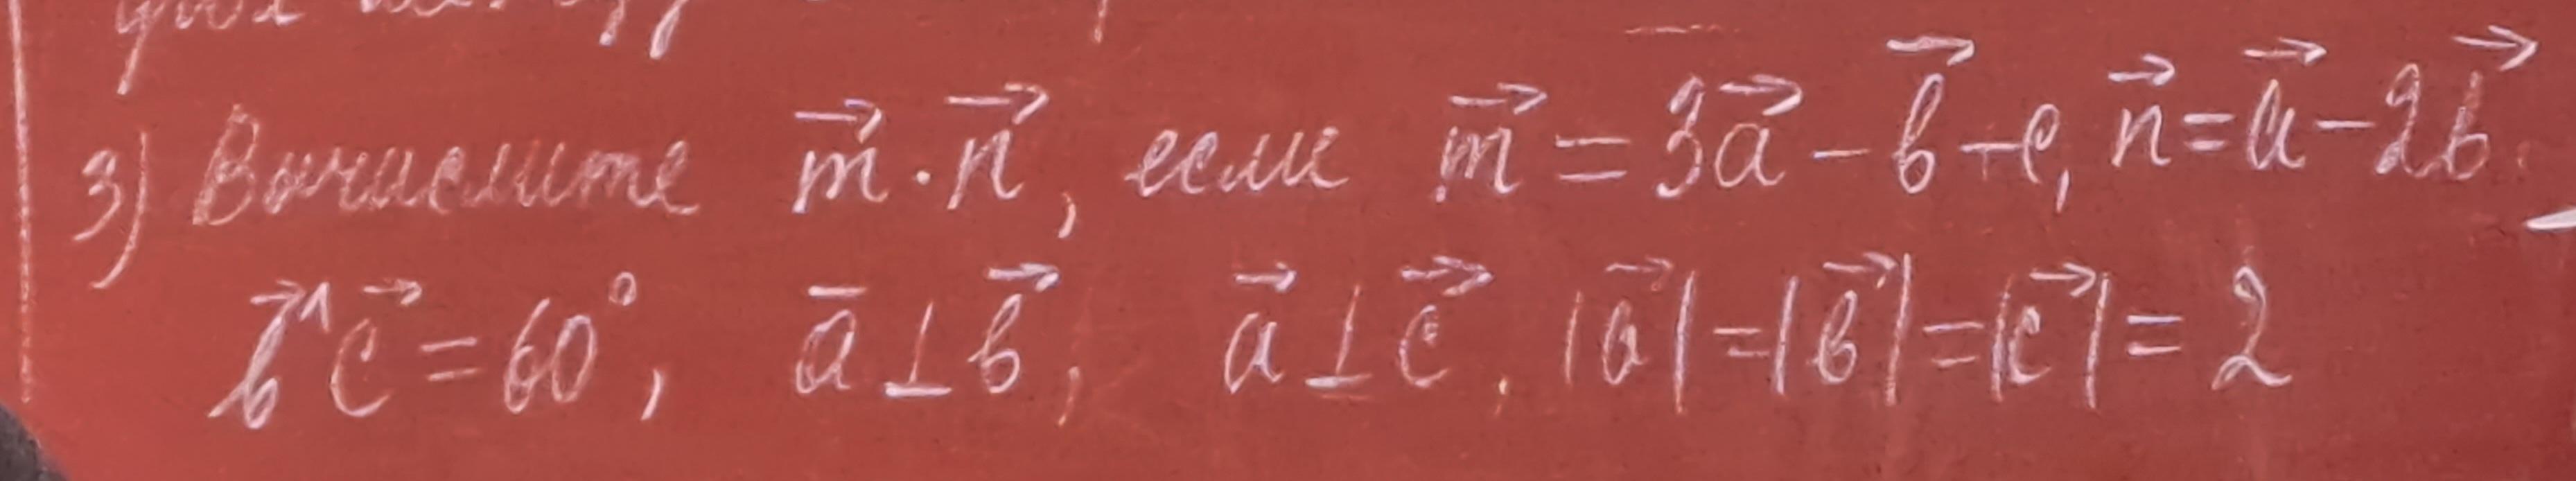 3) Вычислите m⃗ · n⃗, если m⃗ = 3a⃗ − b⃗ + c, n⃗ = a⃗ − 2b⃗.
b⃗^c⃗ = 60°, a̅ ⊥ b⃗, a⃗ ⊥ c⃗. |a⃗| = |b⃗| = |c⃗| = 2